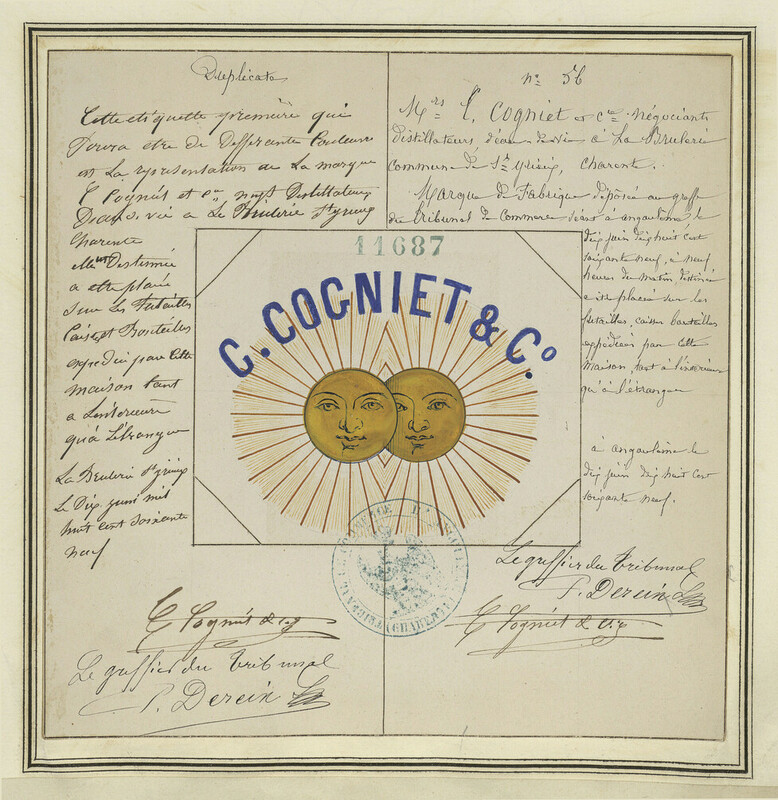 Duplicata
Cette etiquette première qui
Pourra etre de Differente Couleure
est La représentation de La marque
C Cogniét et Cie, négts Distillateurs
D'eau de vie a La Brulerie St yrieix
Charente
Elle est Destinée
a etre placée
sur les Futailles
Caises et Bouteilles
expediés par cette
maison tant
a Lintérieure
qu'a Létranger
La Brulerie St yrieix
Le Dix juni mil
huit cent soixante
neuf
C Cogniét & Cie
Le greffier du Tribunal
P. Derein
no 56
Mrs C. Cogniet et Cie négociants
distillateurs d'eau de vie à La Brulerie
Commune de St Yrieix, Charente.
Marque de Fabrique déposée au greffe
du tribunal de Commerce séant à angoulême le
dix juin dix huit cent
soixante neuf, à neuf
heures du matin, destinée
a être placée sur les
futailles, caisses bouteilles
expédiées par cette
maison, tant à l'intérieur
qu'à l'étranger
à angoulême le
dix juin dix huit cent
soixante neuf.
Le greffier du Tribunal
P. Derein
C Cogniét & Cie
11687
C. COGNIET & Co.
TRIBUNAL DE COMMERCE D'ANGOULÊME (CHARENTE)